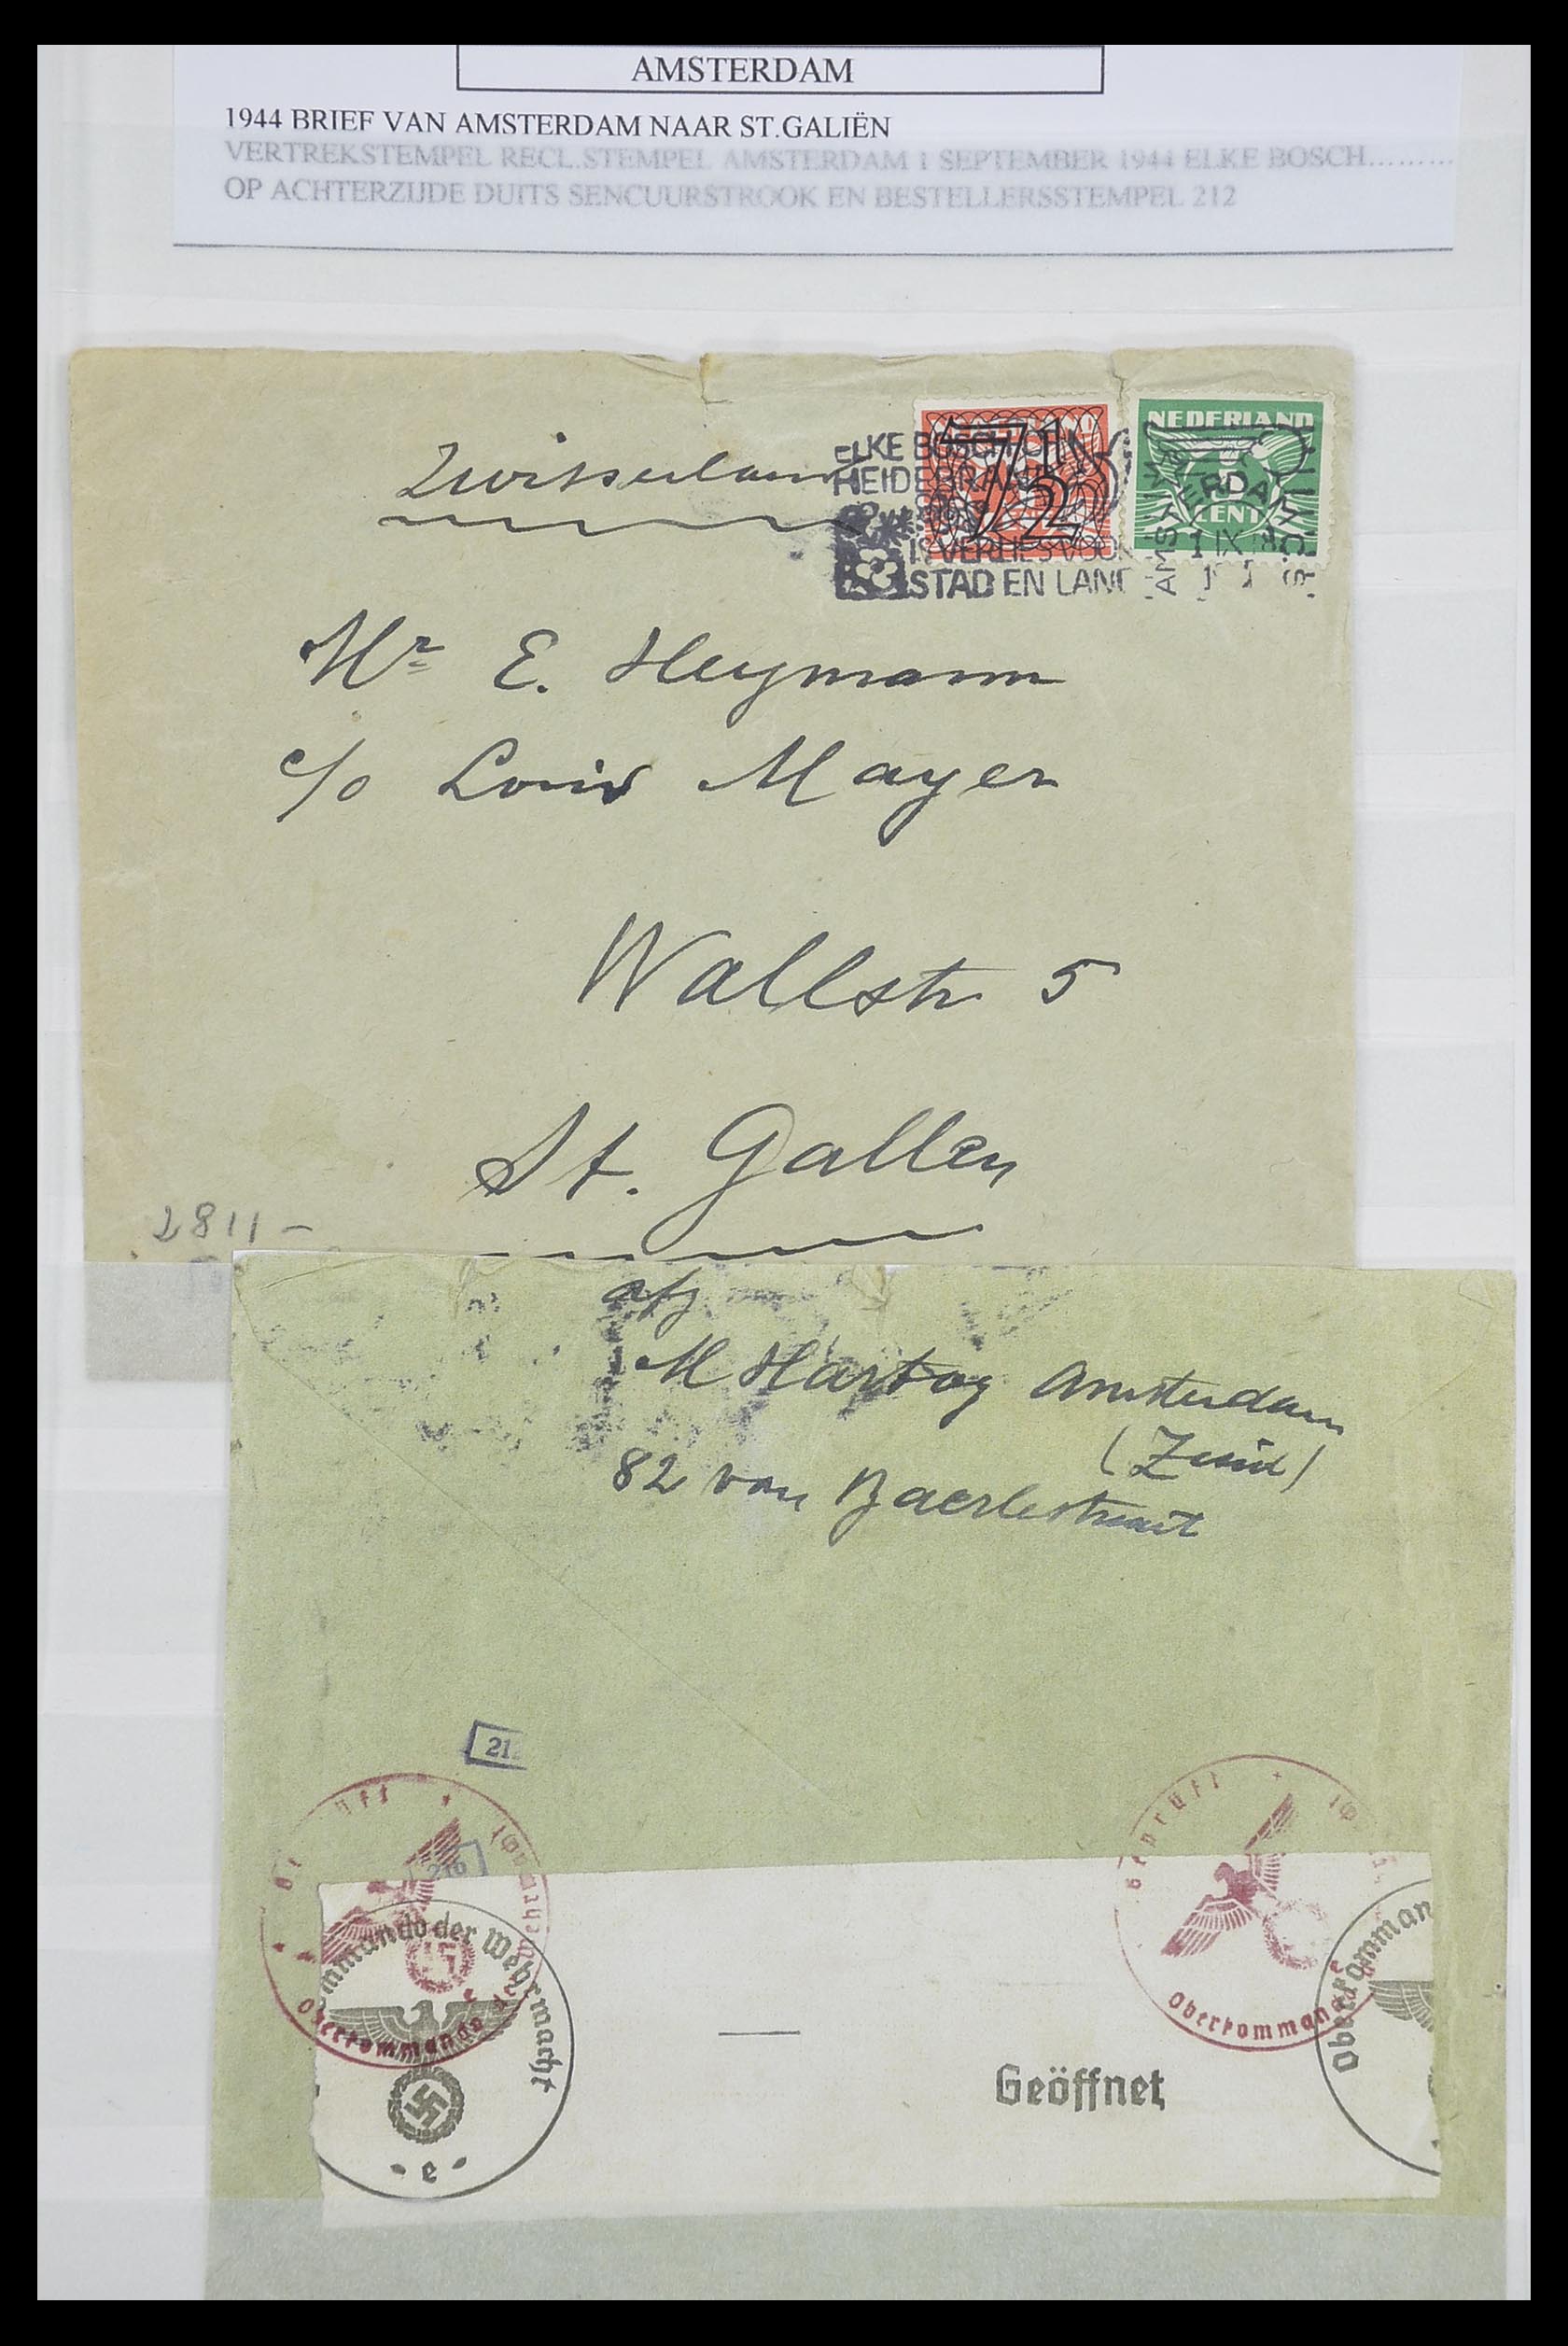 AMSTERDAM
1944 BRIEF VAN AMSTERDAM NAAR ST.GALIËN
VERTREKSTEMPEL RECL.STEMPEL AMSTERDAM 1 SEPTEMBER 1944 ELKE BOSCH.........
OP ACHTERZIJDE DUITS SENCUURSTROOK EN BESTELLERSSTEMPEL 212
Zwitserland
ELKE BOSCH OF
HEIDEBRAND
IS VERLIES VOOR
STAD EN LAND
7½
NEDERLAND
5
CENT
AMSTERDAM
1 IX
Mr E. Heymann
c/o Louis Mayer
Wallstr 5
St. Gallen
2811-
afz
M Hartog Amsterdam
(Zuid)
82 van Baerlestraat
21
216
Geprüft
Oberkommando
mmando der Wehrmacht
e
Geöffnet
geprüft
Oberkommando
Oberkomman